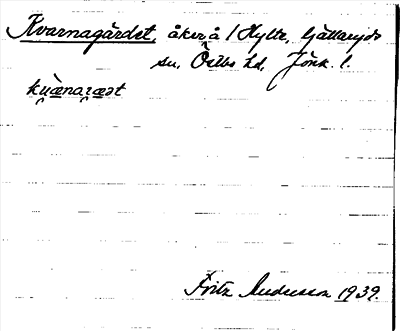 Kvarnagärdet, åker å Hylte, Gällaryds
sn, Östbo hd, Jönk. l.
kuænagæst
Fritz Andersson 1939.